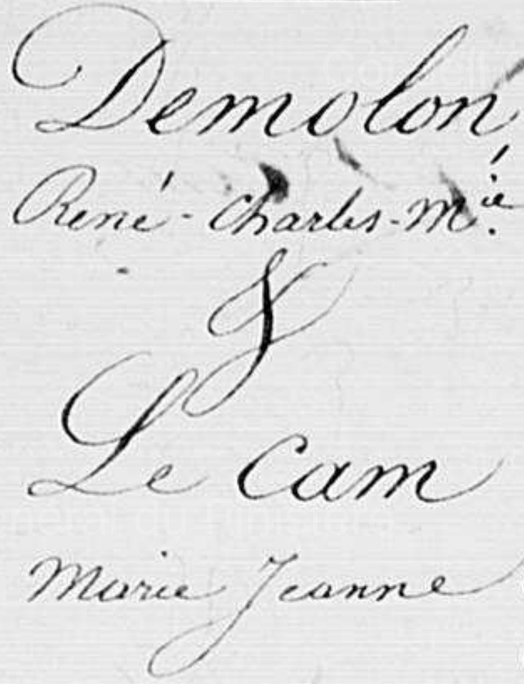 Demolon
René-Charles-Mie.
&
Le Cam
Marie Jeanne